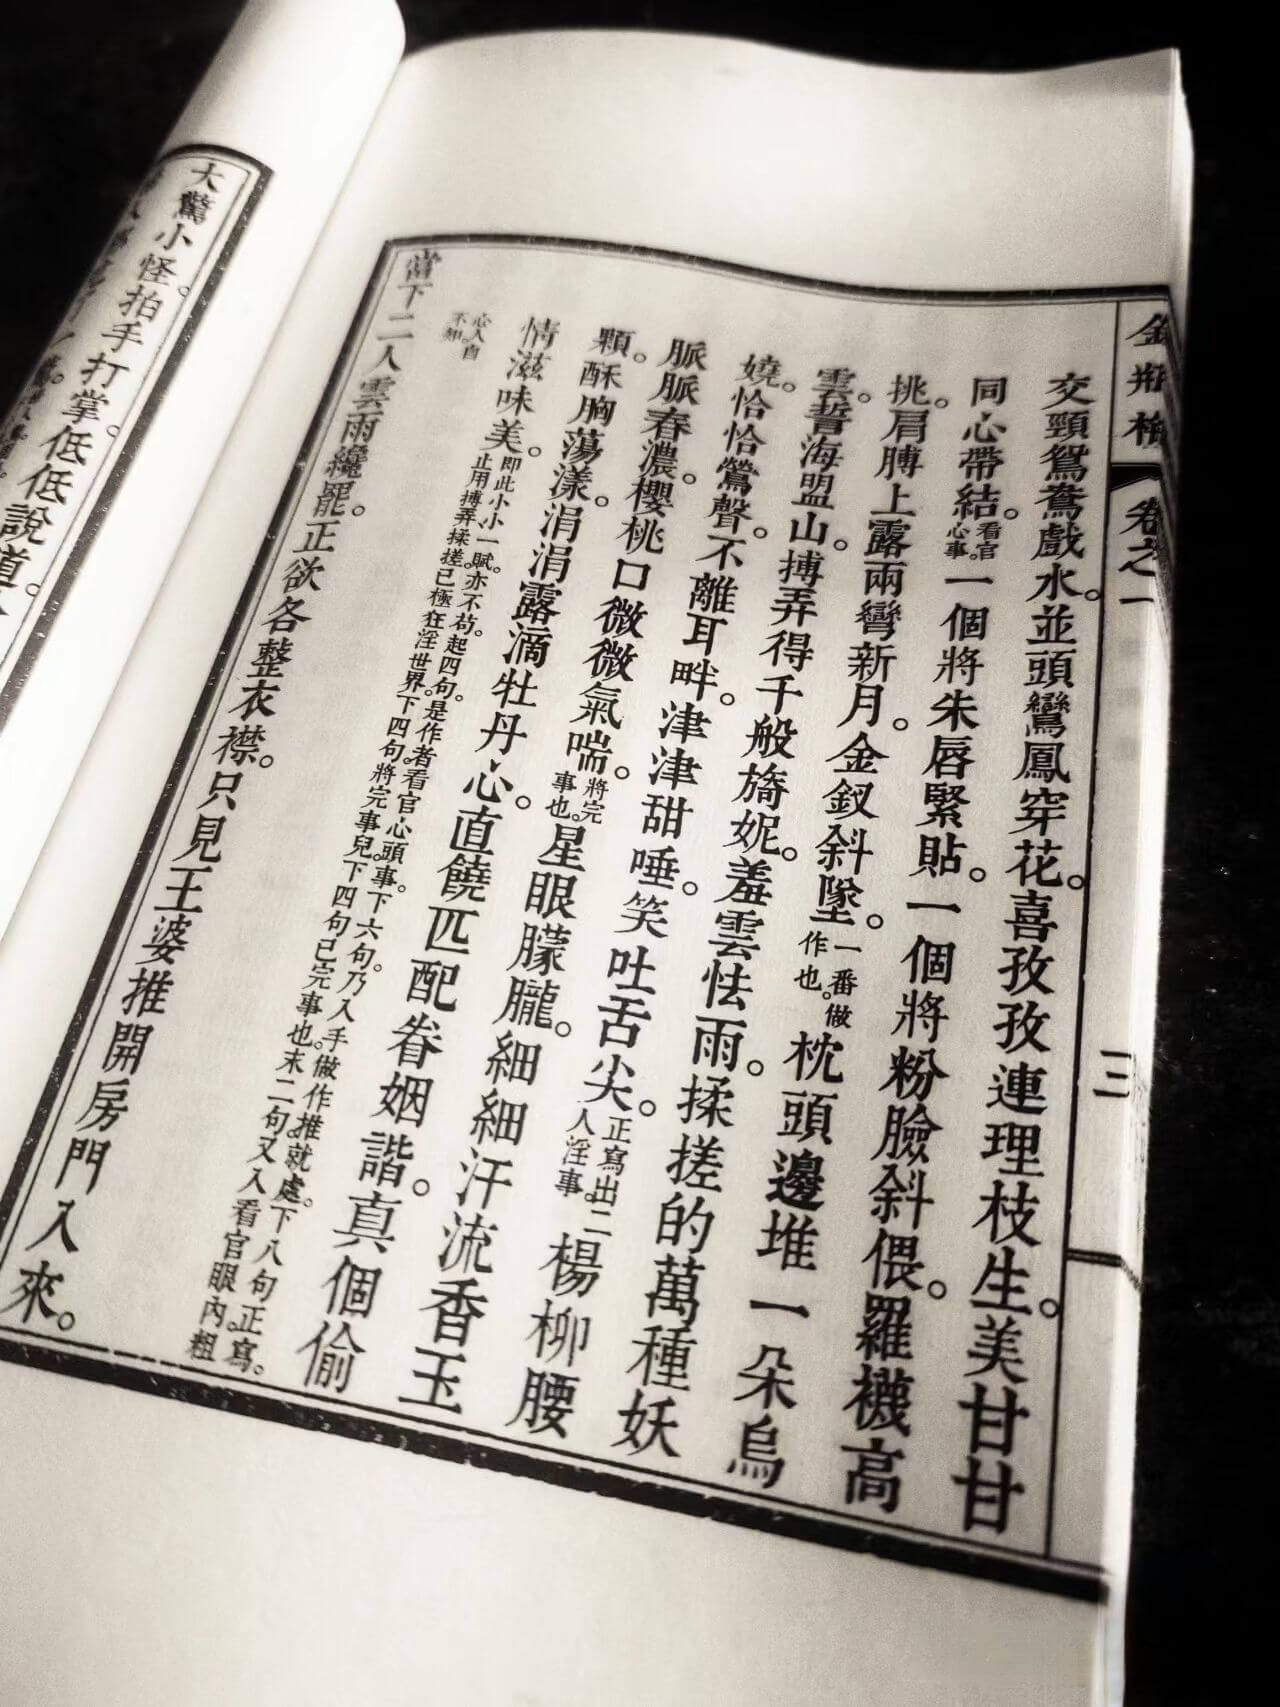 金瓶梅 卷之一 三
交頸鴛鴦戲水。並頭鸞鳳穿花。喜孜孜連理枝生。美甘甘
同心帶結。看官心事。一個將朱唇緊貼。一個將粉臉斜偎。羅襪高
挑。肩膊上露兩彎新月。金釵斜墜。一番做作也。枕頭邊堆一朵烏
雲。誓海盟山。搏弄得千般旖妮。羞雲怯雨。揉搓的萬種妖
嬈。恰恰鶯聲。不離耳畔。津津甜唾。笑吐舌尖。正寫出二人淫事。楊柳腰
脈脈春濃。櫻桃口微微氣喘。將完事也。星眼朦朧。細細汗流香玉
顆。酥胸蕩漾。涓涓露滴牡丹心。直饒匹配眷姻諧。真個偷
情滋味美。
即此小小一賦。亦不苟。起四句。是作者看官心頭事。下六句。乃入手做作推就處。下八句正寫。
止用搏弄揉搓。已極狂淫世界。下四句。將完事兒。下四句已完事也。末二句又入看官眼內。粗
心人自
不知。
當下二人雲雨纔罷。正欲各整衣襟。只見王婆推開房門入來。
大驚小怪。拍手打掌。低低說道。